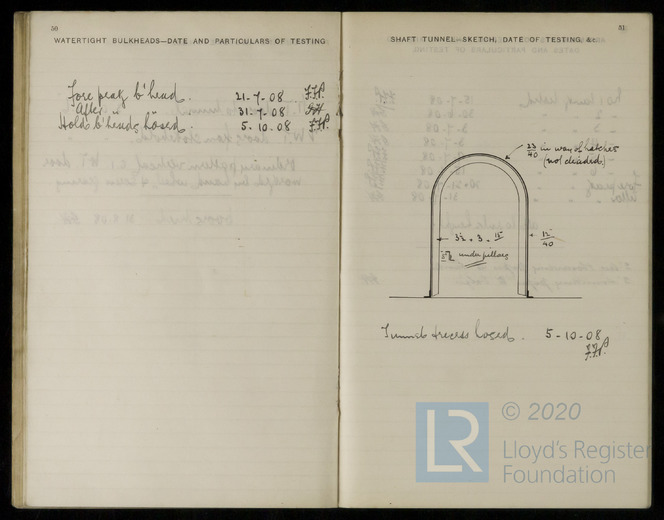 50
WATERTIGHT BULKHEADS—DATE AND PARTICULARS OF TESTING
Fore peak b'head. 21-7-08 F.F.P.
After " 31.7-08
Holds b'heads hosed. 5.10.08 F.F.P.
51
SHAFT TUNNEL—SKETCH, DATE OF TESTING, &c.
23/40 in way of hatches
(not cleaded)
3½ . 3 . 15
under pillars
15/40
Tunnel & recess hosed. 5-10-08
F.F.P.
LR
© 2020
Lloyd's Register
Foundation